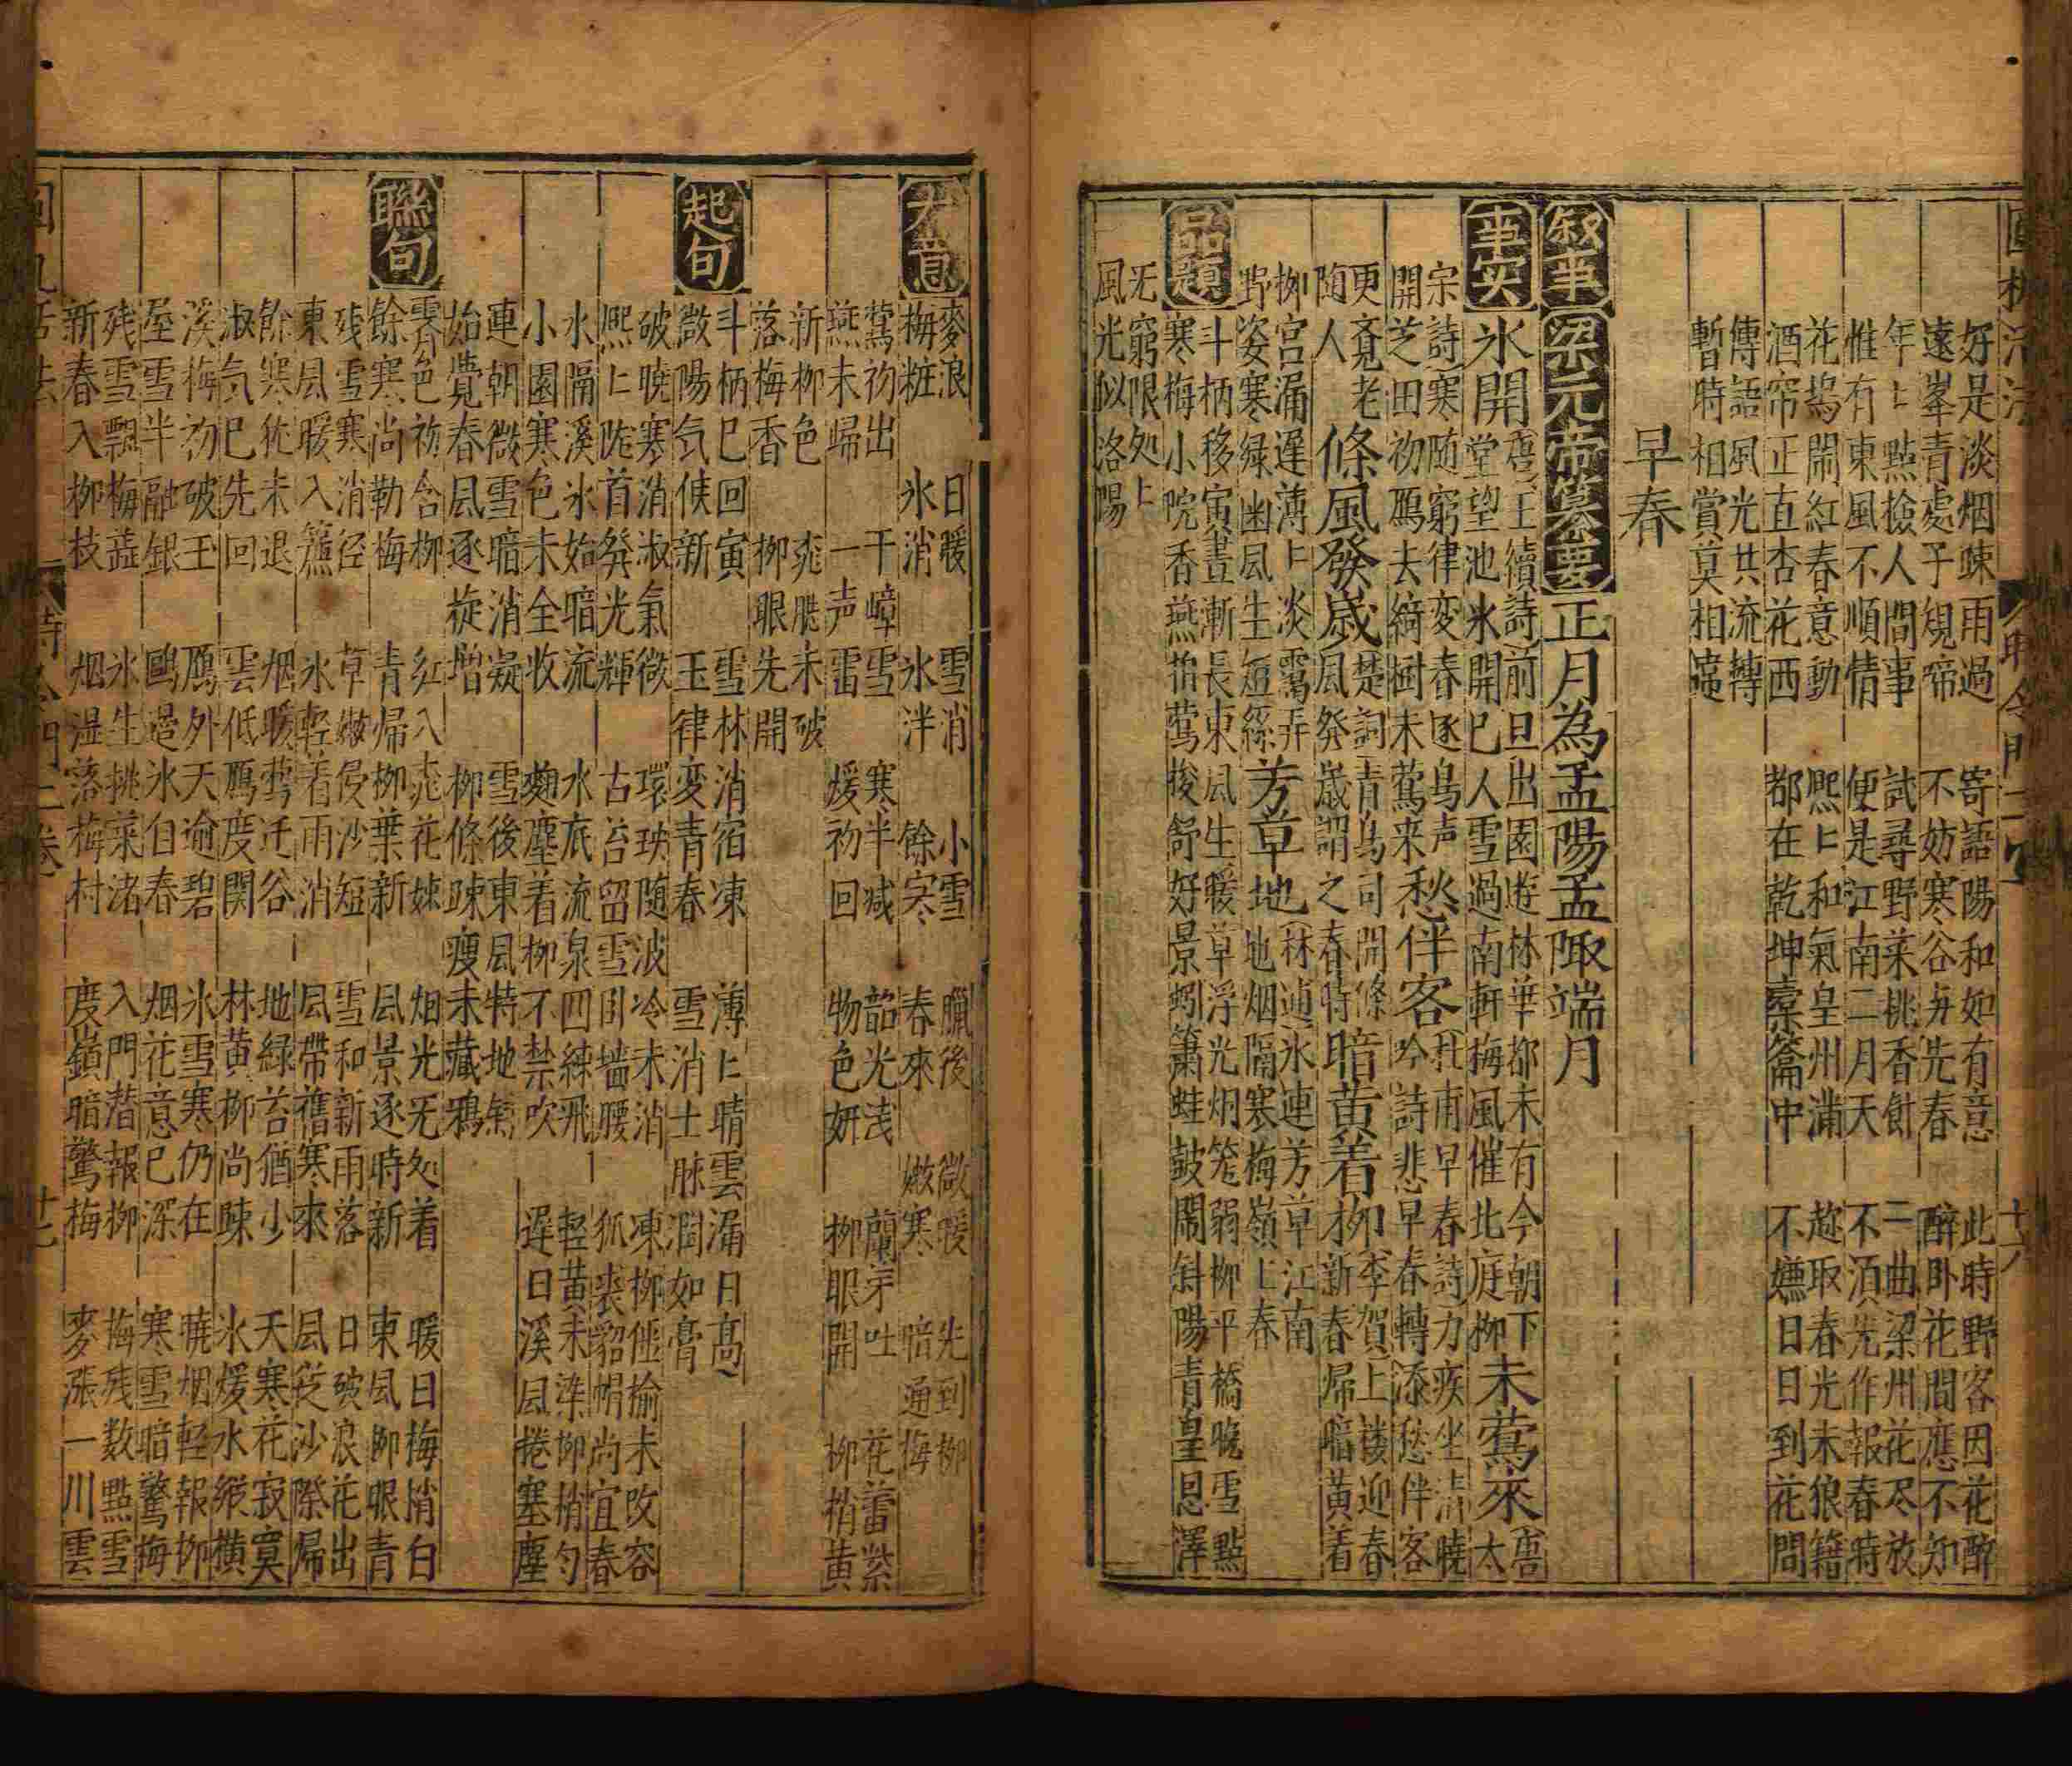 圓機活法 八時令門二卷 十六
好是淡烟疎雨過 寄語陽和如有意 此時野客因花醉
遠峯青處子規啼 不妨寒谷每先春 醉卧花間應不知
年〻點檢人間事 試尋野菜挑香餌 二曲梁州花尽放
惟有東風不順情 便是江南二月天 不須先作報春時
花塢閙紅春意動 熈〻和氣皇州滿 趂取春光未狼籍
酒帘正直杏花西 都在乾坤橐籥中 不嫌日日到花間
傳語風光共流轉
暫時相賞莫相違
早春
叙事 梁元帝纂要 正月為孟陽孟陬端月
事実 氷開 唐王績詩前旦出園遊林華都未有今朝下堂望池氷開已人雪過南軒梅風催北庭柳 未鶯來 唐太
宗詩寒随窮律変春逐鳥声開芝田初鴈去綺樹未鶯来 愁伴客 杜甫早春詩力疾坐清曉吟詩悲早春轉添愁伴客
更覔老隨人 條風發歳 楚詞青鳥司開條風発歳謂之春時 暗黄着柳 李賀上楼迎春新春帰暗黄着
柳宮漏遲薄〻淡靄弄野姿寒緑幽風生短絲 芳草地 林逋氷連芳草江南地烟隔寒梅嶺上春
品題 斗柄移寅晝漸長東風生暖草浮光烟笼弱柳平橋晚雪點
寒梅小院香燕拍鶯梭舒好景蚓簫蛙鼓閙斜陽青皇恩澤
无窮限処〻
風光似洛陽
大意 麥浪 日暖 雪消 小雪 臘後 微暖 先到柳
梅粧 氷消 氷泮 餘寒 春來 嫩寒 暗通梅
鶯初出 千嶂雪 寒半减 韶光浅 蘭芽吐 花蕾紫
燕未帰 一声雷 煖初回 物色妍 柳眼開 柳梢黄
新柳色 桃腮未破
落梅香 柳眼先開
起句 斗柄已回寅 雪林消宿凍 薄〻晴雲漏日高
微陽気候新 玉律変青春 雪消土脉潤如膏
破曉寒消淑氣微 環玦随波冷未消 凍柳侵榆未改容
熈〻昨首発光輝 古苔留雪卧墙腰 狐裘貂帽尚宜春
氷隔溪氷始暗流 水底流泉四練飛 軽黄未染柳梢勻
小園寒色未全收 麯塵着柳不禁吹 遲日溪風捲塞塵
連朝微雪暗消凝 雪後東風特地無
始覺春風逐旋増 柳條踈瘦未藏鴉
聯句 霽色初含柳 紅入桃花妹 烟光无処着 暖日梅梢白
餘寒尚勒梅 青帰柳葉新 風景逐時新 東風柳眼青
残雪寒消径 草嫩侵沙短 雪和新雨落 日破浪花出
東風暖入簾 氷軽着雨消 風帶舊寒來 風従沙際帰
餘寒猶未退 烟暖鶯迁谷 地緑苔猶少 天寒花寂寞
淑気已先回 雲低鴈度関 林黄柳尚踈 氷煖水縱橫
溪梅初破玉 鴈外天逾碧 氷雪寒仍在 曉烟軽報柳
屋雪半融銀 鷗邉氷自春 烟花意已深 寒雪暗驚梅
残雪飄梅蕋 氷生挑菜渚 入門潜報柳 梅残数點雪
新春入柳枝 烟湿落梅村 度嶺暗驚梅 麥漲一川雲
八時令門二卷 十七